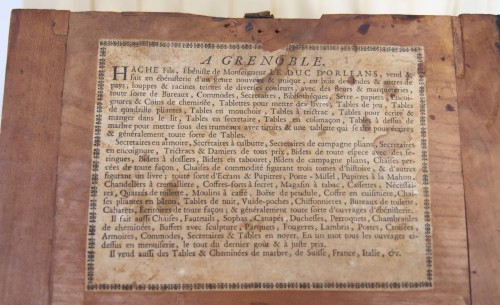 A GRENOBLE.
HACHE Fils, Ebéniste de Monseigneur LE DUC D'ORLEANS, vend &
fait en ébénisterie d'un genre nouveau & unique, en bois des Indes & autres de
pays, louppes & racines teintes de diverses couleurs, avec des fleurs & marqueteries,
toute sorte de Bureaux, Commodes, Secretaires, Bibliothéques, Serre-papiers, Encoi-
gnures & Coins de cheminée, Tablettes pour mettre des livres, Tables de jeu, Tables
de quadrille pliantes, Tables en mouchoir, Tables à trictrac, Tables pour écrire &
manger dans le lit, Tables en secretaire, Tables en cosmaçon, Tables à dessus de
marbre pour mettre sous des trumeaux avec tiroirs & une tablette qui se tire pour écrire
& généralement toute sorte de Tables.
Secretaires en armoire, Secretaires à culbutte, Secretaires de campagne pliants, Secretaires
en encoignure, Trictracs & Damiers de tous prix, Bidets de toute espece avec des se-
ringues, Bidets à dossiers, Bidets en tabouret, Bidets de campagne pliants, Chaises per-
cées de toute façon, Chaises de commodité figurant trois tomes d'histoire, & d'autres
figurant un livre; toute sorte d'Ecrans & Pupitres, Porte-Missel, Pupitres à la Mahon,
Chandeliers à cremaillere, Coffres-forts à secret, Magasin à tabac, Cassettes, Nécessai-
res, Quarrés de toilette, Moulins à caffé, Boëte de pendule, Coffre en cuisiniere, Chai-
ses pliantes en bâton, Tables de nuit, Vuide-poches, Chiffonnieres, Bureaux de toilette,
Cabarets, Ecritoires de toute façon; & généralement toute sorte d'ouvrages d'ébénisterie.
Il fait aussi Chaises, Fauteuils, Sophas, Canapés, Duchesses, Perroquets, Chambranles
de cheminées, Buffets avec sculpture, Parquets, Fougeres, Lambris, Portes, Croisées,
Armoires, Commodes, Secretaires & Tables en noyer. En un mot tous les ouvrages ci-
dessus en menuiserie, le tout du dernier goût & à juste prix.
Il vend aussi des Tables & Cheminées de marbre, de Suisse, France, Italie, &c.